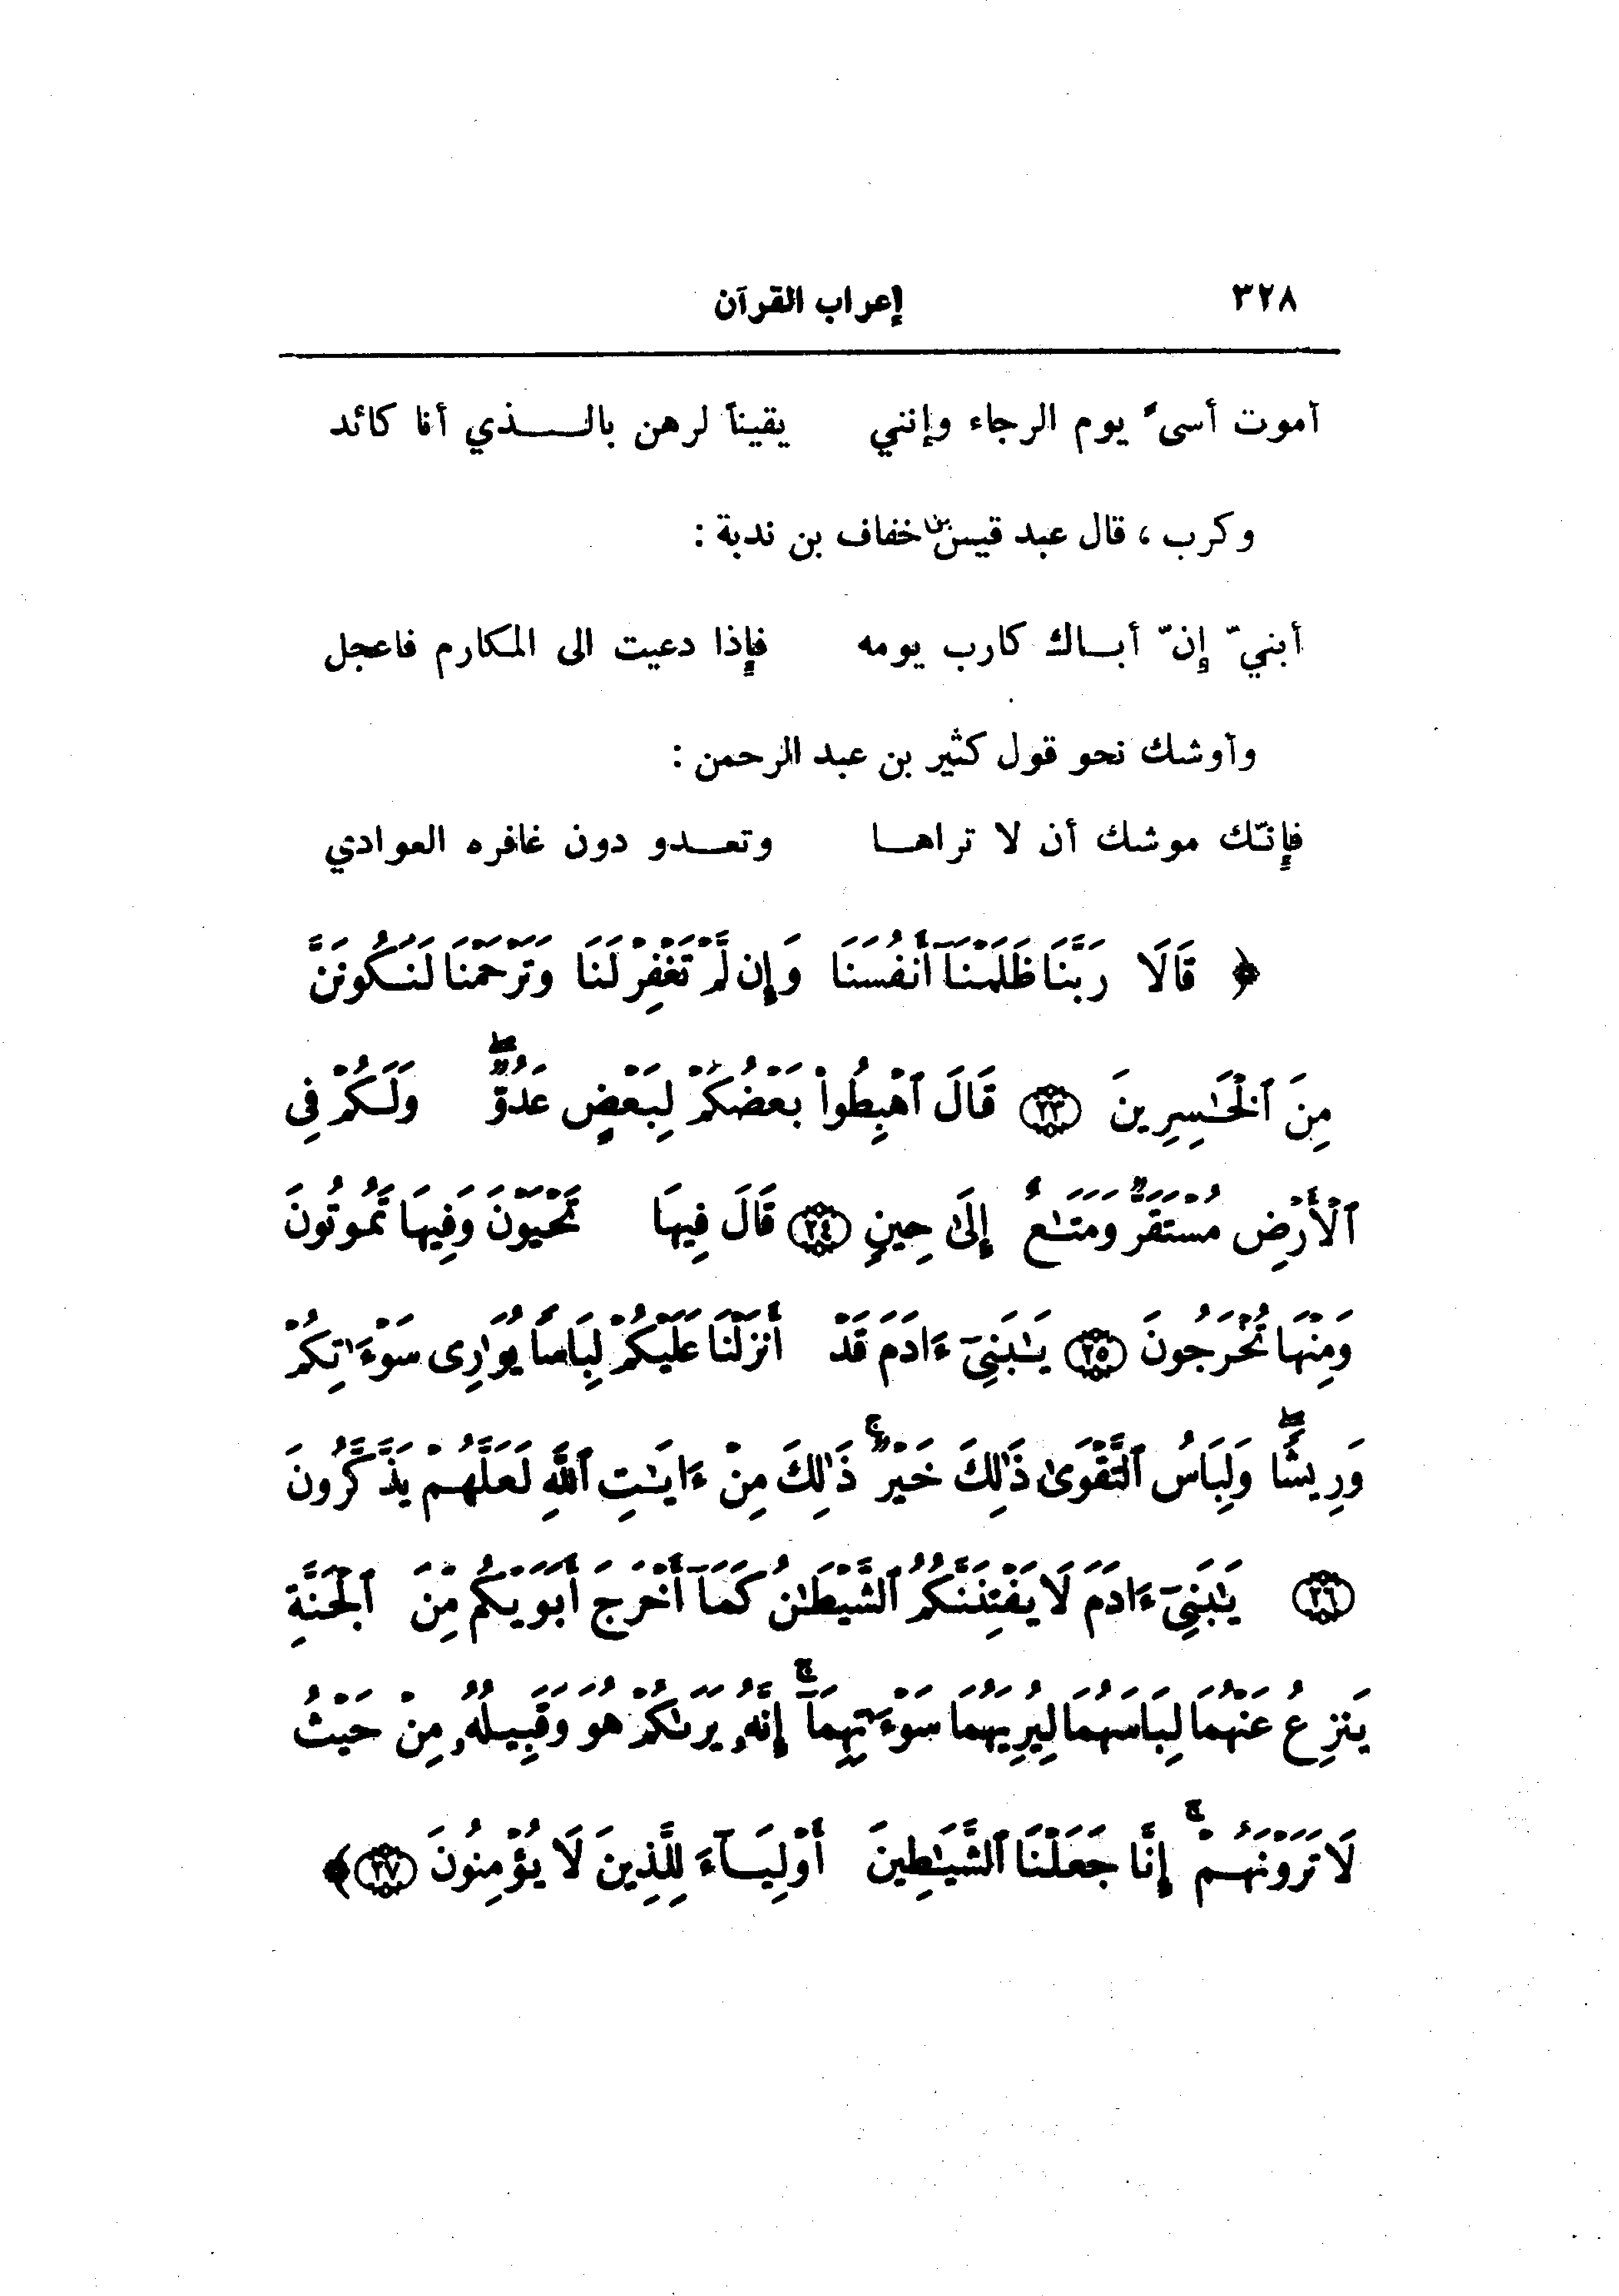 ٣٢٨ إعراب القرآن
أموت أسىً يوم الرجاء وإنني يقيناً لرهن بالــذي أنا كائد
وكرب ، قال عبد قيس بن خفاف بن ندبة :
أبنيّ إنّ أبــاك كارب يومه فإذا دعيت الى المكارم فاعجل
وأوشك نحو قول كثير بن عبد الرحمن :
فإنّك موشك أن لا تراهــا وتعــدو دون غافره العوادي
﴿ قَالَا رَبَّنَا ظَلَمْنَآ أَنفُسَنَا وَإِن لَّمْ تَغْفِرْ لَنَا وَتَرْحَمْنَا لَنَكُونَنَّ
مِنَ ٱلْخَـٰسِرِينَ ٢٣ قَالَ ٱهْبِطُوا۟ بَعْضُكُمْ لِبَعْضٍ عَدُوٌّ ۖ وَلَكُمْ فِى
ٱلْأَرْضِ مُسْتَقَرٌّ وَمَتَـٰعٌ إِلَىٰ حِينٍ ٢٤ قَالَ فِيهَا تَحْيَوْنَ وَفِيهَا تَمُوتُونَ
وَمِنْهَا تُخْرَجُونَ ٢٥ يَـٰبَنِىٓ ءَادَمَ قَدْ أَنزَلْنَا عَلَيْكُمْ لِبَاسًا يُوَٰرِى سَوْءَٰتِكُمْ
وَرِيشًا ۖ وَلِبَاسُ ٱلتَّقْوَىٰ ذَٰلِكَ خَيْرٌ ۚ ذَٰلِكَ مِنْ ءَايَـٰتِ ٱللَّهِ لَعَلَّهُمْ يَذَّكَّرُونَ
٢٦ يَـٰبَنِىٓ ءَادَمَ لَا يَفْتِنَنَّكُمُ ٱلشَّيْطَـٰنُ كَمَآ أَخْرَجَ أَبَوَيْكُم مِّنَ ٱلْجَنَّةِ
يَنزِعُ عَنْهُمَا لِبَاسَهُمَا لِيُرِيَهُمَا سَوْءَٰتِهِمَآ ۚ إِنَّهُۥ يَرَىٰكُمْ هُوَ وَقَبِيلُهُۥ مِنْ حَيْثُ
لَا تَرَوْنَهُمْ ۚ إِنَّا جَعَلْنَا ٱلشَّيَـٰطِينَ أَوْلِيَآءَ لِلَّذِينَ لَا يُؤْمِنُونَ ٢٧ ﴾